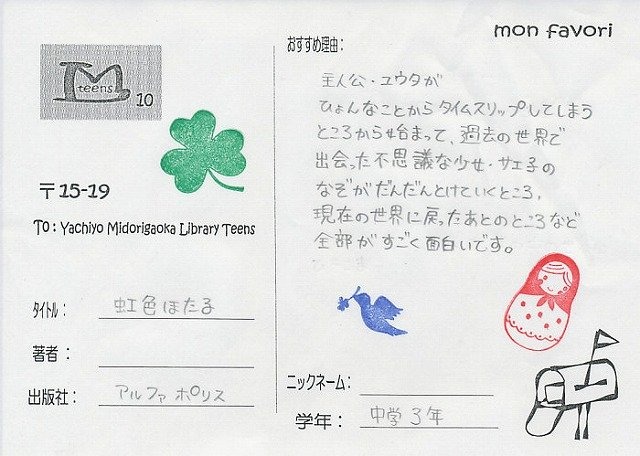 mon favori
teens
10
〒15-19
To: Yachiyo Midorigaoka Library Teens
タイトル: 虹色ほたる
著者:
出版社: アルファポリス
おすすめ理由:
主人公・ユウタが
ひょんなことからタイムスリップしてしまう
ところから始まって、過去の世界で
出会った不思議な少女・サエ子の
なぞがだんだんとけていくところ、
現在の世界に戻ったあとのところなど
全部がすごく面白いです。
ニックネーム:
学年: 中学3年